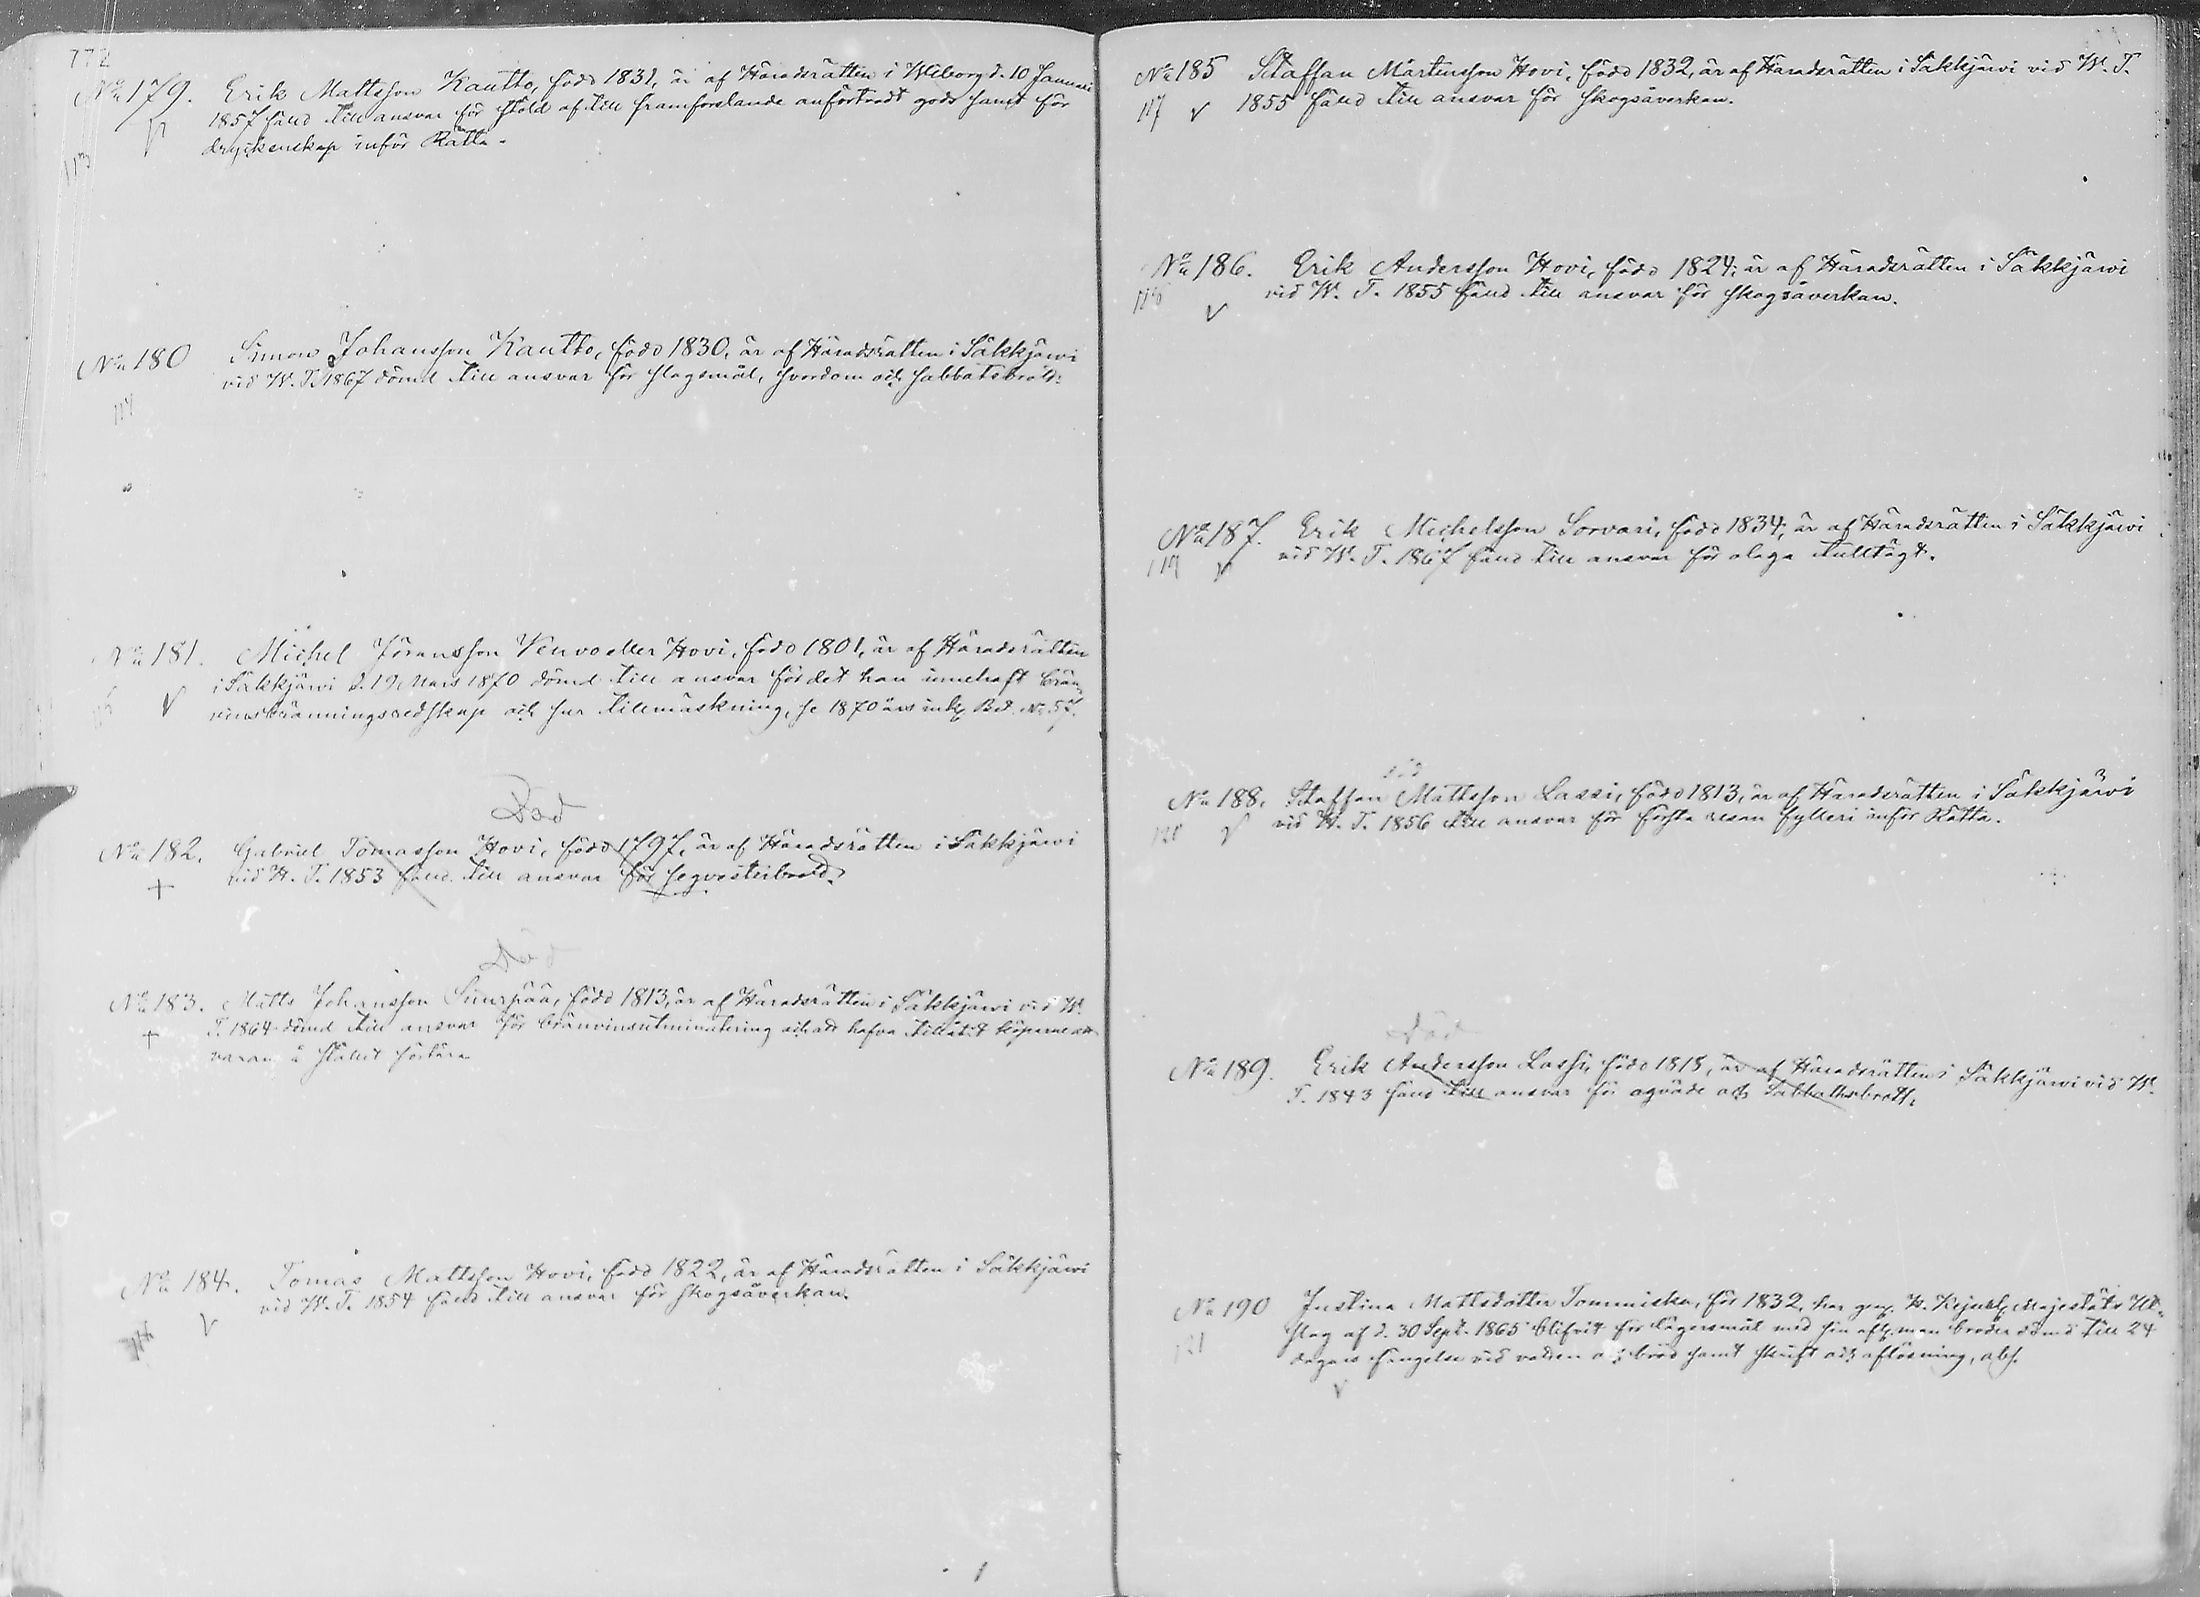 772
No 179. Erik Mattsson Kautto, född 1831, är af Häradsrätten i Wiborg d. 10 Januari
1857 fäld till ansvar för stöld af till framforslande anförtrodt gods samt för
dryckenskap inför Rätta.
113
No 180 Simon Johansson Kautto, född 1830, är af Häradsrätten i Säkkjärvi
vid W. T. 1867 dömd till ansvar för slagsmål, svordom och sabbatsbrott.
114
No 181. Michel Jöransson Venvo eller Hovi, född 1801, är af Häradsrätten
i Säkkjärvi d. 19 Mars 1870 dömd till ansvar för det han innehaft brän-
vinsbränningsredskap och sur tillmäskning, se 1870 års Bet. No 57.
Död
No 182. Gabriel Tomasson Hovi, född 1797, är af Häradsrätten i Säkkjärvi
vid H. T. 1853 fäld till ansvar för seqvesterbrott.
Död
No 183. Matts Johansson Suurpää, född 1813, är af Häradsrätten i Säkkjärvi vid W.
T. 1864 dömd till ansvar för bränvinsutminutering och att hafva tillåtit köparne att
varan å stället förtära
No 184. Tomas Mattsson Hovi, född 1822, är af Häradsrätten i Säkkjärvi
vid W. T. 1854 fäld till ansvar för skogsåverkan.
No 185 Staffan Mårtensson Hovi, född 1832, är af Häradsrätten i Säkkjärvi vid W. T.
117 1855 fäld till ansvar för skogsåverkan.
No 186. Erik Andersson Hovi, född 1824, är af Häradsrätten i Säkkjärvi
118 vid W. T. 1855 fäld till ansvar för skogsåverkan.
No 187. Erik Michelsson Sorvari, född 1834, är af Häradsrätten i Säkkjärvi
119 vid W. T. 1867 fäld till ansvar för olaga
död
No 188. Staffan Mattsson Lassi, född 1813, är af Häradsrätten i Säkkjärvi
120 vid H. T. 1856 till ansvar för första resan fylleri inför Rätta.
Död
No 189. Erik Andersson Lassi, född 1818, är af Häradsrätten i Säkkjärvi vid W.
T. 1843 fäld till ansvar för oqväde och Sabbathsbrott.
No 190 Justina Mattsdotter Tommiska, för 1832, har gm. K. Kejserl. Majestäts Ut-
slag af d. 30 Sept. 1865 blifvit för lägersmål med sin afl. man broder dömd till 24
121 dagars fängelse vid vatten och bröd samt skrift och aflösning, abs.